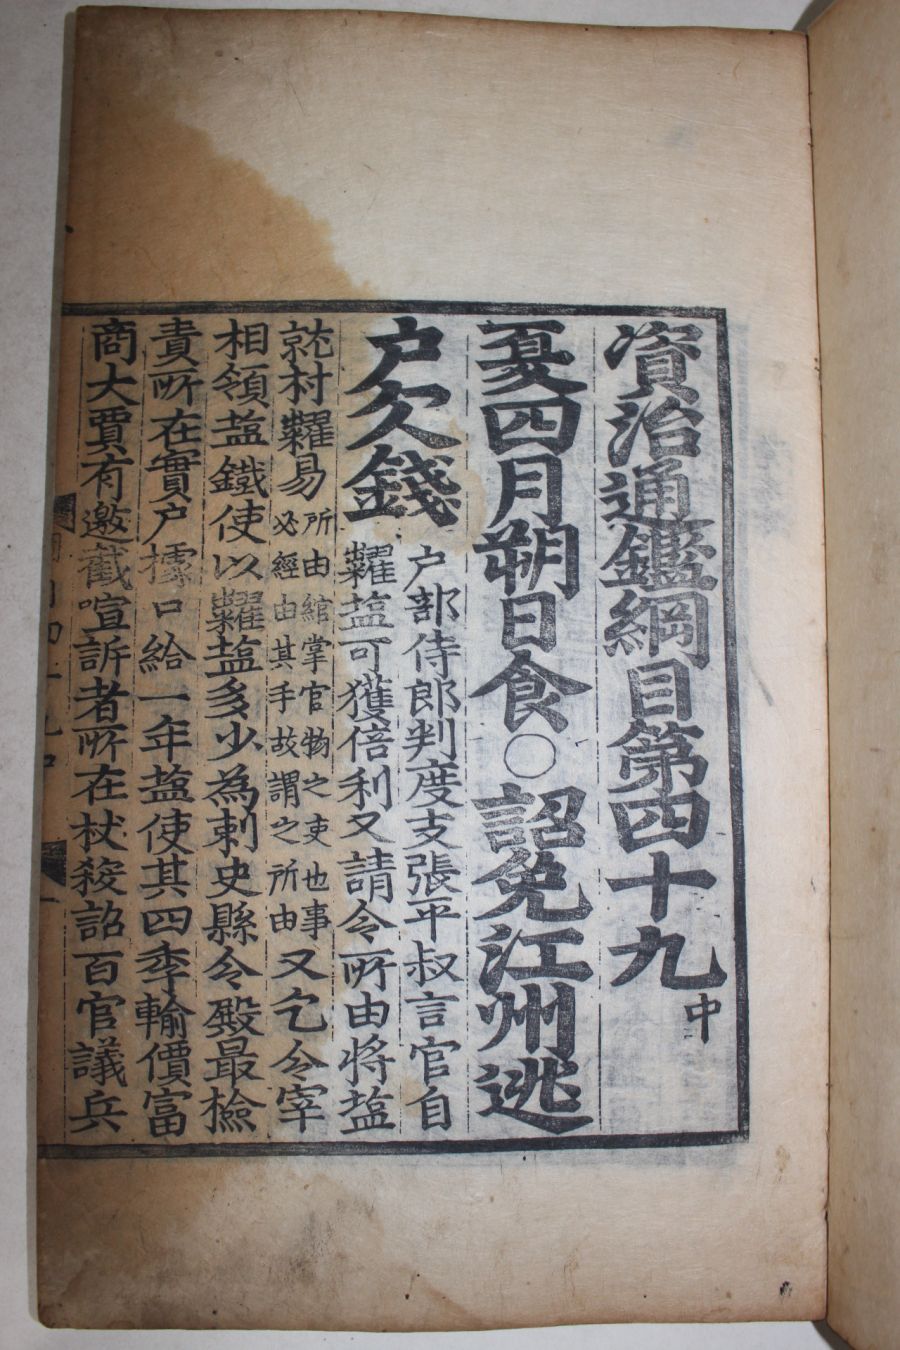 資治通鑑綱目第四十九中
夏四月朔日食○詔免江州逃
户欠錢
户部侍郎判度支張平叔言官自
糶塩可獲倍利又請令所由将塩
就村糶易
所由綰掌官物之吏也事
必經由其手故謂之所由
又乞令宰
相領塩鐵使以糶塩多少為刺史縣令殿最撿
責所在實户據口給一年塩使其四季輸價富
商大賈有邀截喧訴者所在杖殺詔百官議兵